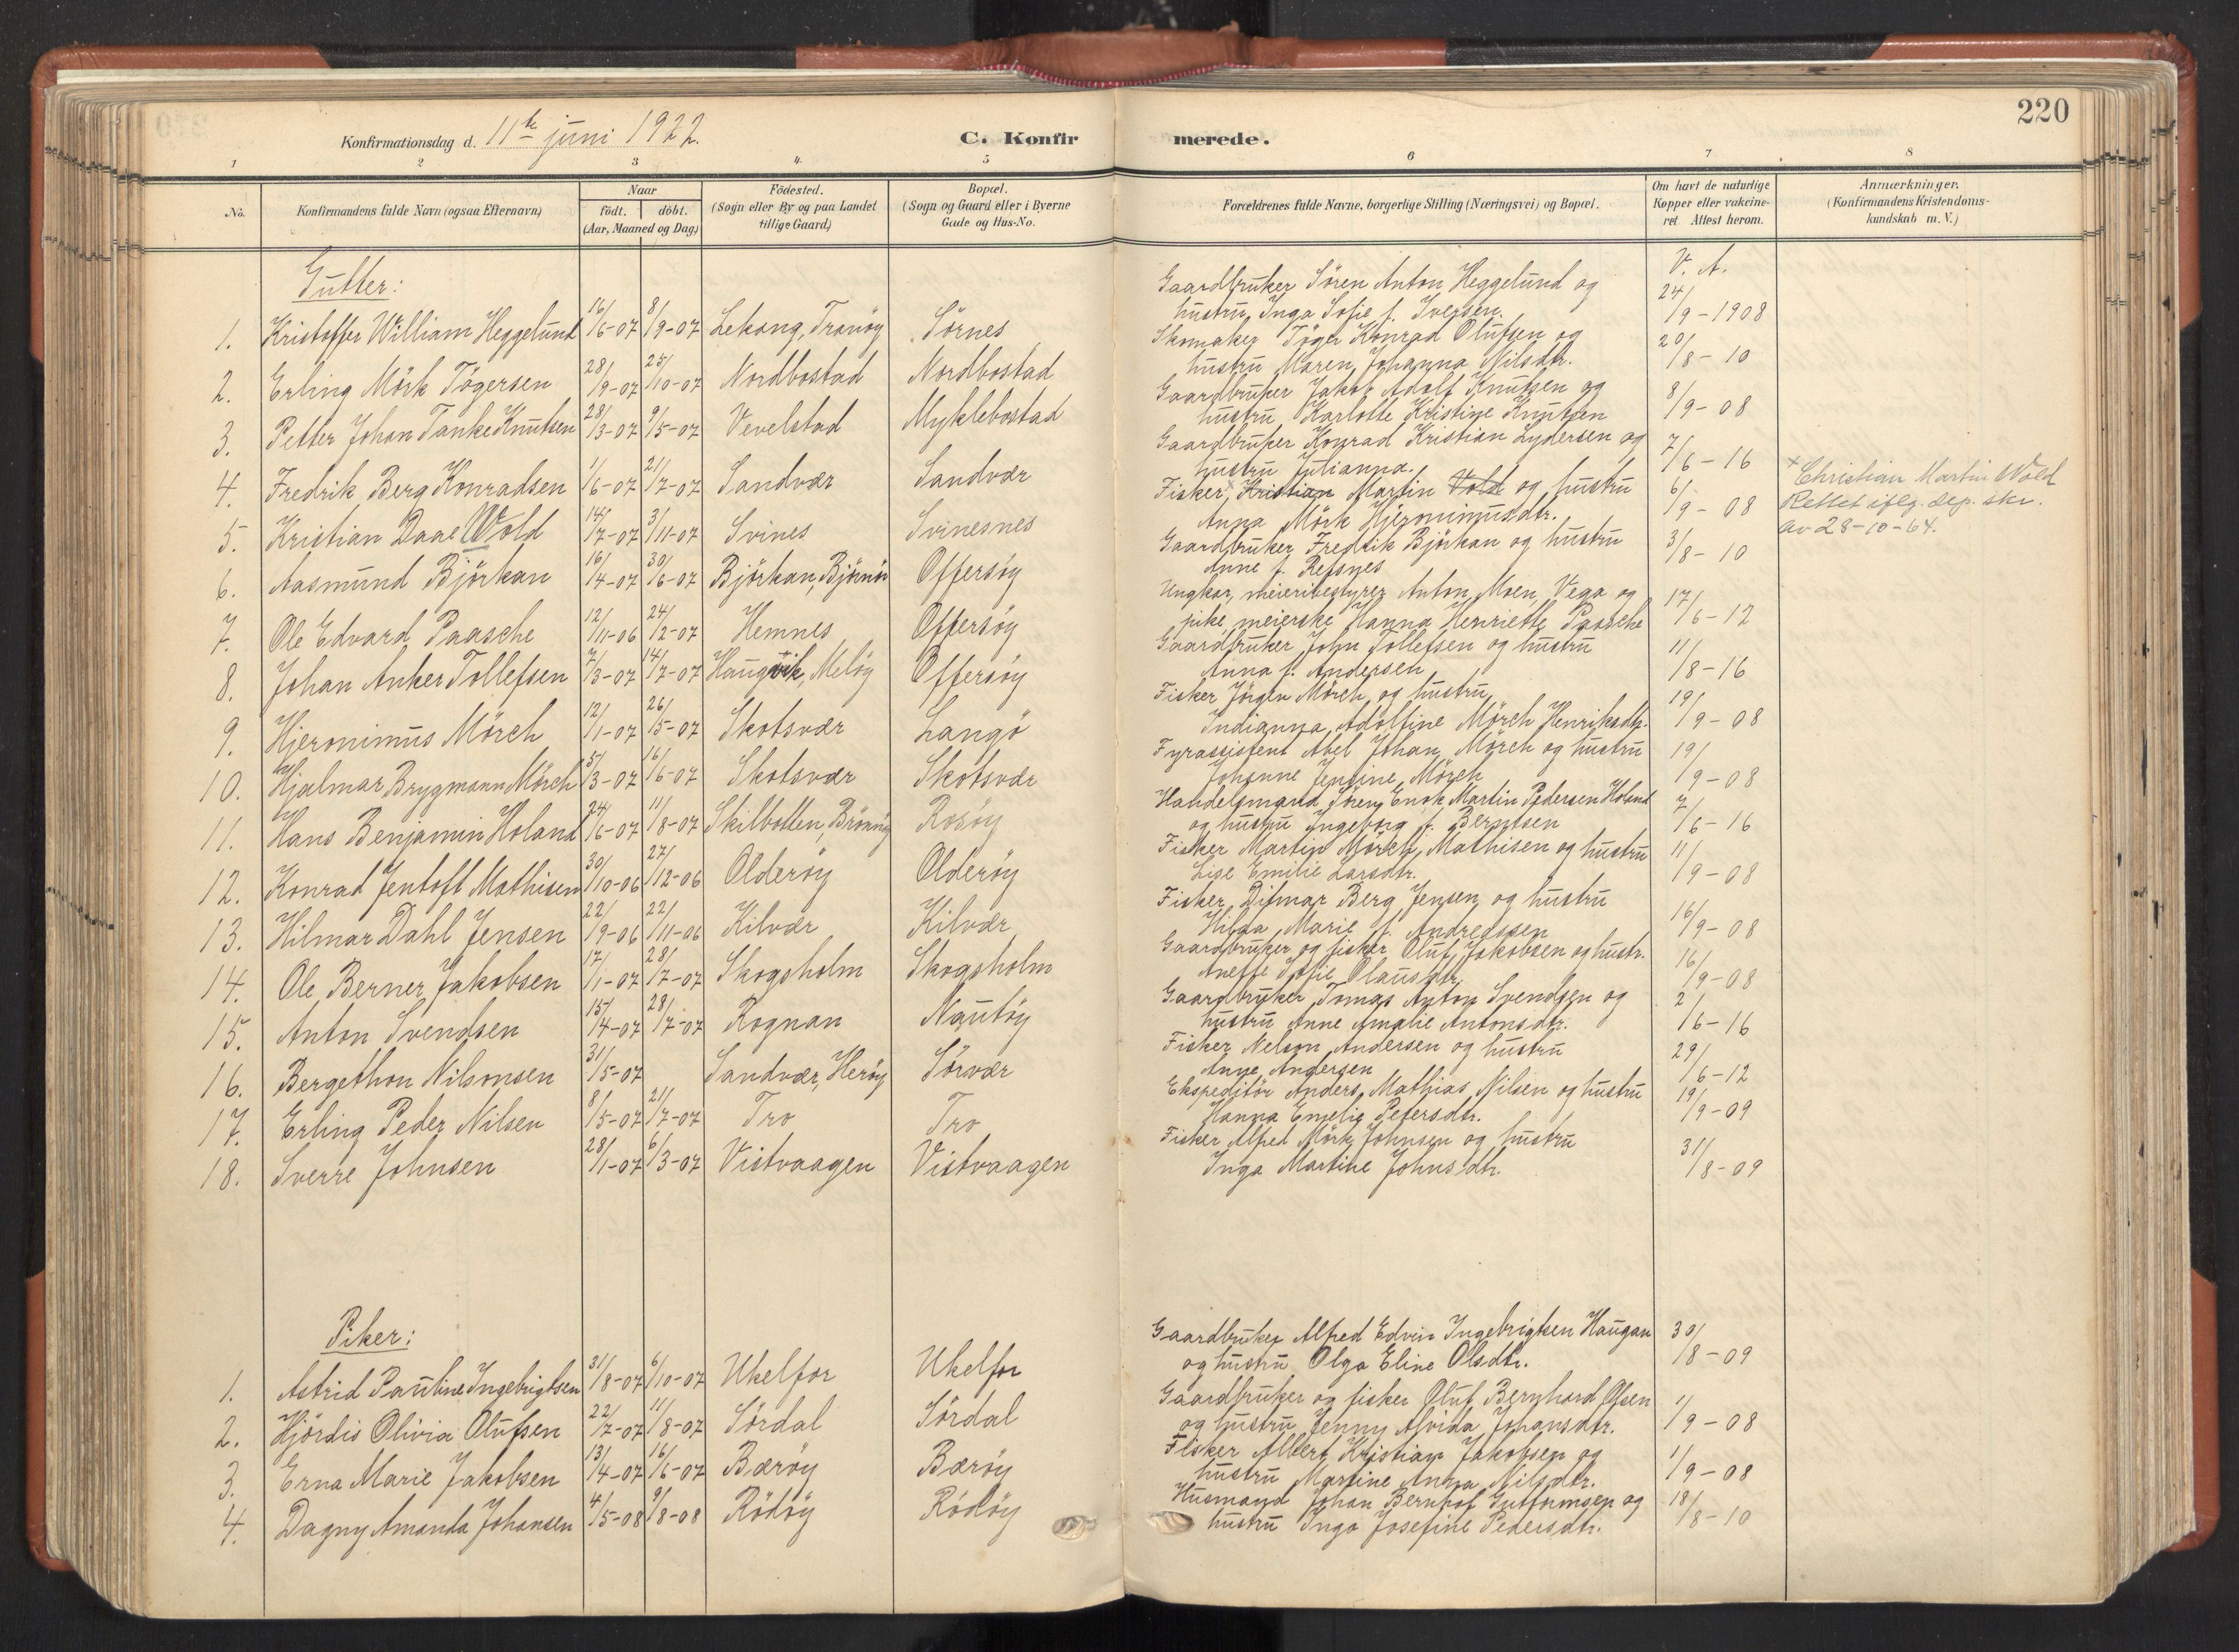 220
Konfirmationsdag d. 11te juni 1922.
C. Konfirmerede.
1 2 3 4 5 6 7 8
No.
Konfirmandens fulde Navn (ogsaa Efternavn)
Naar
født. døbt.
(Aar, Maaned og Dag)
Födested.
(Sogn eller By og paa Landet
tillige Gaard)
Bopæl.
(Sogn og Gaard eller i Byerne
Gade og Hus-No.
Forældrenes fulde Navne, borgerlige Stilling (Næringsvei) og Bopæl.
Om havt de naturlige
Kopper eller vakcine-
ret. Attest herom.
Anmærkninger.
(Konfirmandens Kristendoms-
kundskab m. V.)
Gutter:
V. A.
1. Kristoffer William Heggelund 16/6-07 8/9-07 Lekang, Tranöy Sörnes
Gaardbruker Sören Anton Heggelund og
hustru Inga Sofie f. Iversen. 24/9-1908
2. Erling Mörk Tögersen 28/9-07 25/10-07 Nordbostad Nordbostad
Skomaker Töger Konrad Olufsen og
hustru Maren Johanna Nilsdtr. 20/8-10
3. Petter Johan Tanke Knutsen 28/3-07 9/5-07 Vevelstad Myklebostad
Gaardbruker Jakob Adolf Knutsen og
hustru Karlotte Kristine Knutsen 8/9-08
4. Fredrik Berg Konradsen 1/6-07 21/7-07 Sandvær Sandvær
Gaardbruker Konrad Kristian Lydersen og
hustru Julianna. 7/6-16
5. Kristian Daae Wold 14/7-07 3/11-07 Svines Svinesnes
Fisker, × Kristian Martin Vold og hustru
Anna Mörk Hjeronimusdtr. 6/9-08
× Christian Martin Wold
Rettet iflg. dep. skr.
av 28-10-64.
6. Aasmund Björkan 16/4-07 30/6-07 Björkan, Björnör Offersöy
Gaardbruker Fredrik Björkan og hustru
Anne f. Refsnes 3/8-10
7. Ole Edvard Paasche 12/11-06 24/2-07 Hemnes Offersöy
Ungkar, meieribestyrer Anton Moen, Vega og
pike, meierske Hanna Henriette Paasche 17/6-12
8. Johan Anker Tollefsen 7/3-07 14/7-07 Haugvik, Melöy Offersöy
Gaardbruker John Tollefsen og hustru
Anna f. Andersen 11/8-16
9. Hjeronimus Mörch 12/1-07 26/5-07 Skotsvær Langö
Fisker Jörgen Mörch og hustru
Indianna Adolfine Mörch Henriksdtr. 19/9-08
10. Hjalmar Brygmann Mörch 5/3-07 16/6-07 Skotsvær Skotsvær
Fyrassistent Abel Johan Mörch og hustru
Johanne Jensine Mörch 19/9-08
11. Hans Benjamin Holand 24/6-07 11/8-07 Skilbotten, Brönnöy Rosöy
Handelsmand Sören Enok Martin Pedersen Holand
og hustru Ingeborg f. Berntsen 7/6-16
12. Konrad Jentoft Mathisen 30/10-06 27/12-06 Olderöy Olderöy
Fisker Martin Mörch Mathisen og hustru
Lise Emilie Larsdtr. 11/9-08
13. Hilmar Dahl Jensen 22/9-06 22/11-06 Kilvær Kilvær
Fisker Ditmar Berg Jensen og hustru
Hilda Marie f. Andreassen 16/9-08
14. Ole Berner Jakobsen 17/1-07 28/7-07 Skogsholm Skogsholm
Gaardbruker og fisker Oluf Jakobsen og hustr.
Anette Sofie Olausdtr. 16/9-08
15. Anton Svendsen 15/4-07 28/7-07 Rognan Nautöy
Gaardbruker Tomas Anton Svendsen og
hustru Anne Amalie Antonsdtr. 2/6-16
16. Bergethon Nilsonsen 31/5-07 Sandvær, Heröy Sörvær
Fisker Nelson Andersen og hustru
Anne Andersen 29/6-12
17. Erling Peder Nilsen 8/5-07 21/7-07 Tro Tro
Ekspeditör Anders Mathias Nilsen og hustru
Hanna Emelie Petersdtr. 19/9-09
18. Sverre Johnsen 28/1-07 6/3-07 Vistvaagen Vistvaagen
Fisker Alfred Mörk Johnsen og hustru
Inga Martine Johnsdtr. 31/8-09
Piker:
1. Astrid Pauline Ingebrigtsen 31/8-07 6/10-07 Ukelfor Ukelfor
Gaardbruker Alfred Edvin Ingebrigtsen Haugan
og hustru Olga Eline Olsdtr. 30/8-09
2. Hjördis Olivia Olufsen 22/7-07 11/8-07 Sördal Sördal
Gaardbruker og fisker Oluf Bernhard Olsen
og hustru Jenny Alvida Johansdtr. 1/9-08
3. Erna Marie Jakobsen 13/4-07 16/6-07 Bæröy Bæröy
Fisker Albert Kristian Jakobsen og
hustru Martine Anna Nilsdtr. 1/9-08
4. Dagny Amanda Johansen 4/5-08 9/8-08 Rödöy Rödöy
Husmand Johan Bernhof Guttormsen og
hustru Inga Josefine Pedersdtr. 18/8-10